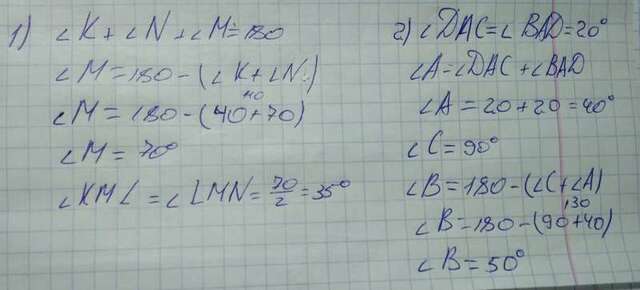 1) ∠K + ∠N + ∠M = 180
∠M = 180 - (∠K + ∠N)
∠M = 180 - (40 + 70)
∠M = 70°
∠KML = ∠LMN = 70/2 = 35°
2) ∠DAC = ∠BAD = 20°
∠A = ∠DAC + ∠BAD
∠A = 20 + 20 = 40°
∠C = 90°
∠B = 180 - (∠C + ∠A)
130
∠B = 180 - (90 + 40)
∠B = 50°